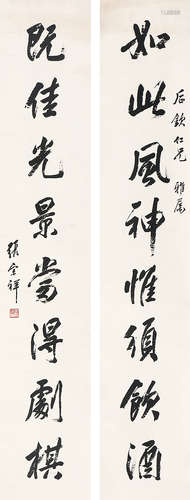 如此風神惟須飲酒
后欽仁兄 雅屬
既佳光景當得劇棋
張金祥